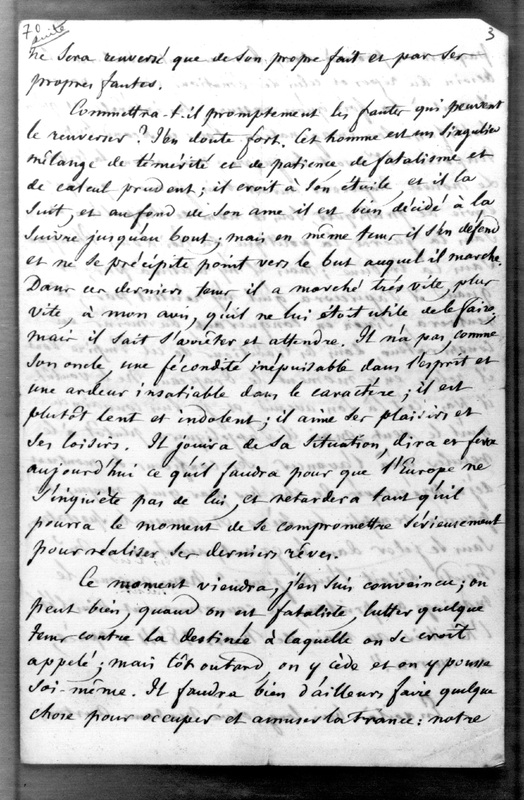 70 suite
3
ne sera renversé que de son propre fait et par ses
propres fautes.
Commettra-t-il promptement les fautes qui peuvent
le renverser? J'en doute fort. Cet homme est un singulier
mélange de témérité et de patience, de fatalisme et
de calcul prudent; il croit à son étoile, et il la
suit, et au fond de son ame il est bien décidé à la
suivre jusqu'au bout; mais en même tems il s'en défend
et ne se précipite point vers le but auquel il marche.
Dans ces derniers tems il a marché très vite, plus
vite, à mon avis, qu'il ne lui étoit utile de le faire;
mais il sait s'arrêter et attendre. Il n'a pas, comme
son oncle, une fécondité inépuisable dans l'esprit et
une ardeur insatiable dans le caractère; il est
plutôt lent et indolent; il aime ses plaisirs et
ses loisirs. Il jouira de sa situation, dira et fera
aujourd'hui ce qu'il faudra pour que l'Europe ne
s'inquiète pas de lui, et retardera tant qu'il
pourra le moment de se compromettre sérieusement
pour réaliser ses derniers rêves.
Ce moment viendra, j'en suis convaincu; on
peut bien, quand on est fataliste, lutter quelque
tems contre la destinée à laquelle on se croit
appelé; mais tôt ou tard, on y cède et on y pousse
soi-même. Il faudra bien d'ailleurs faire quelque
chose pour occuper et amuser la France: notre